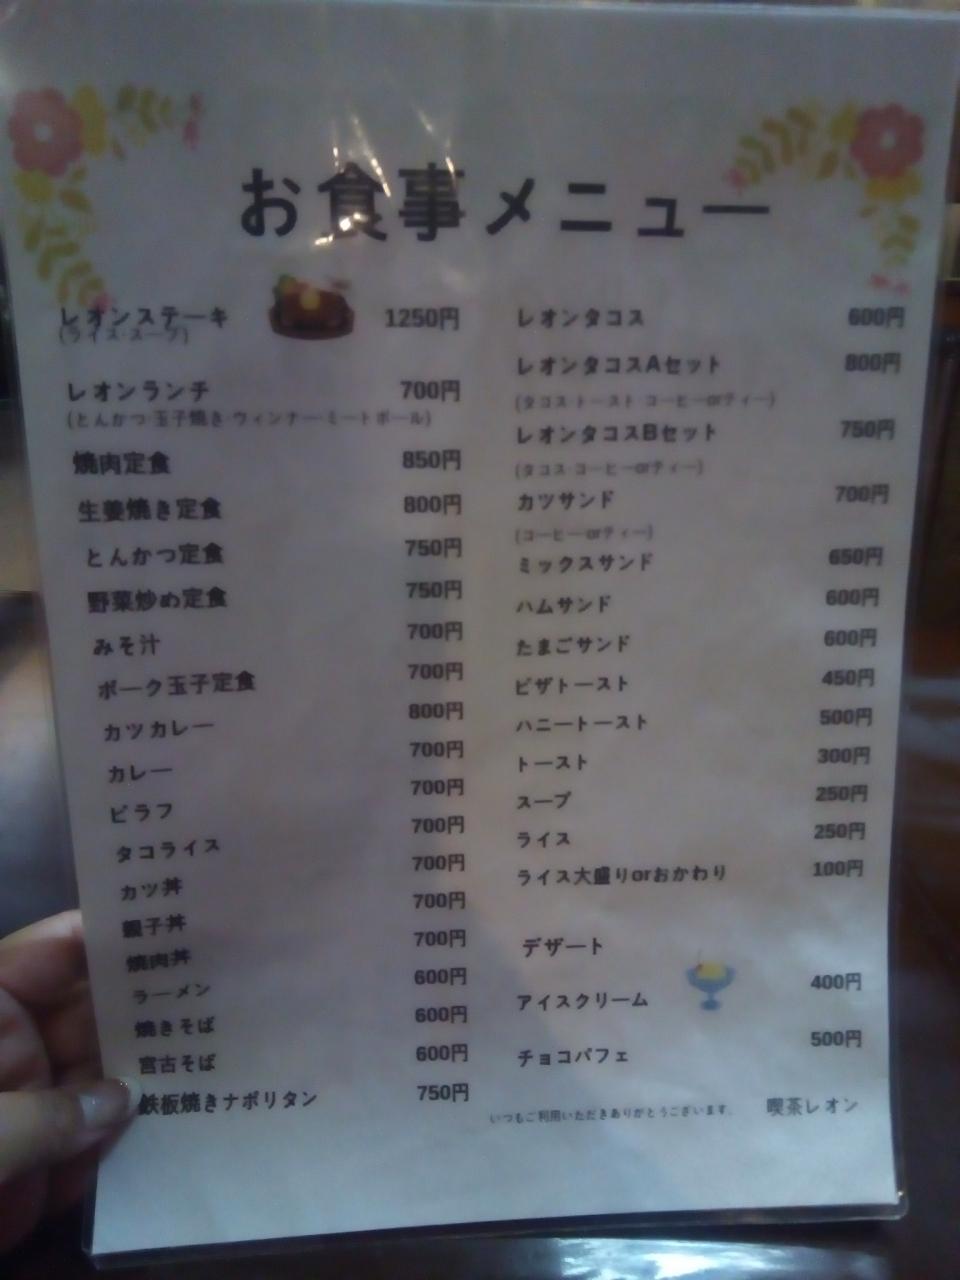 お食事メニュー
レオンステーキ 1250円
(ライス·スープ)
レオンランチ 700円
(とんかつ·玉子焼き·ウィンナー·ミートボール)
焼肉定食 850円
生姜焼き定食 800円
とんかつ定食 750円
野菜炒め定食 750円
みそ汁 700円
ポーク玉子定食 700円
カツカレー 800円
カレー 700円
ピラフ 700円
タコライス 700円
カツ丼 700円
親子丼 700円
焼肉丼 700円
ラーメン 600円
焼きそば 600円
宮古そば 600円
鉄板焼きナポリタン 750円
レオンタコス 600円
レオンタコスAセット 800円
(タコス·トースト·コーヒーorティー)
レオンタコスBセット 750円
(タコス·コーヒーorティー)
カツサンド 700円
(コーヒーorティー)
ミックスサンド 650円
ハムサンド 600円
たまごサンド 600円
ピザトースト 450円
ハニートースト 500円
トースト 300円
スープ 250円
ライス 250円
ライス大盛りorおかわり 100円
デザート
アイスクリーム 400円
チョコパフェ 500円
いつもご利用いただきありがとうございます。 喫茶レオン